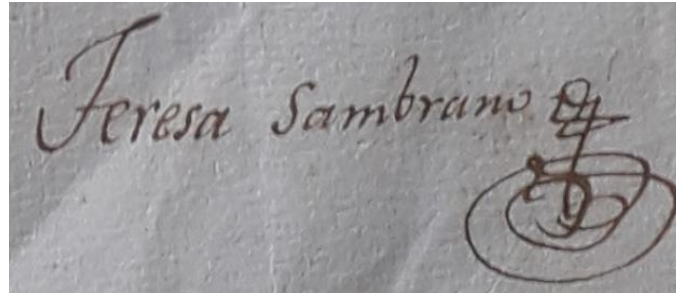 Teresa Sambrano